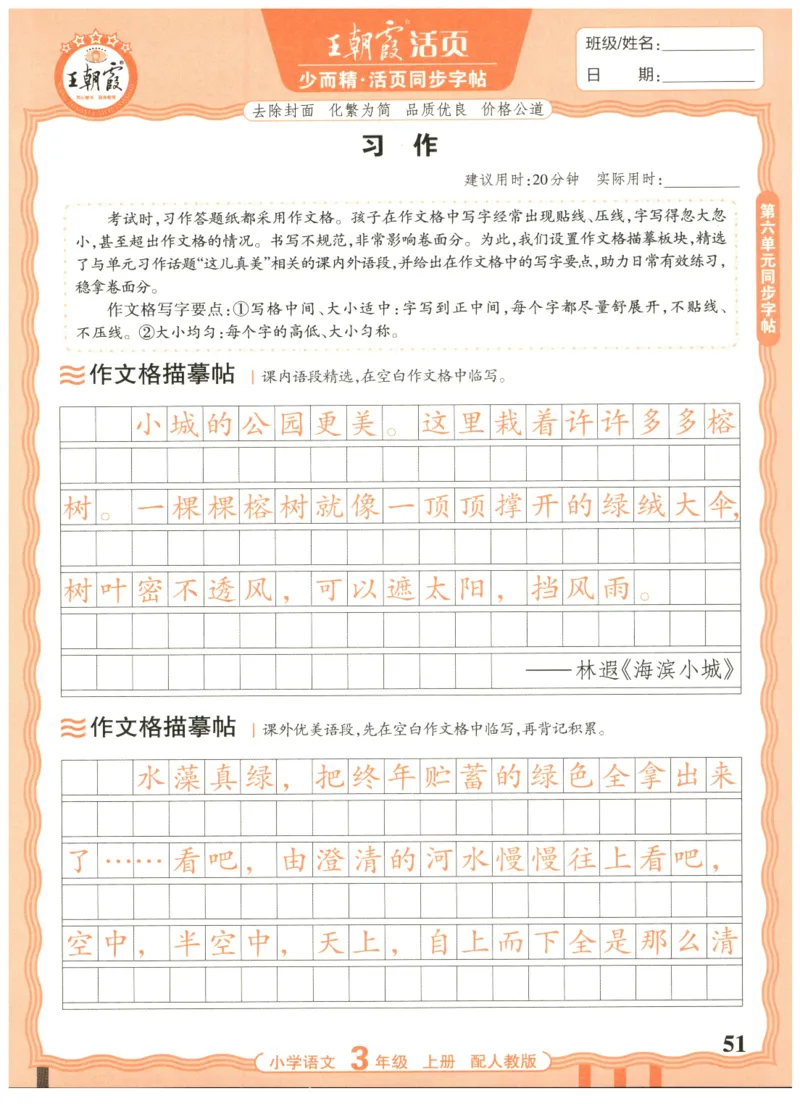 王朝霞®活页
少而精·活页同步字帖
王朝霞
班级/姓名：
日 期：
去除封面 化繁为简 品质优良 价格公道
习 作
建议用时：20分钟 实际用时：
考试时，习作答题纸都采用作文格。孩子在作文格中写字经常出现贴线、压线，字写得忽大忽
小，甚至超出作文格的情况。书写不规范，非常影响卷面分。为此，我们设置作文格描摹板块，精选
了与单元习作话题“这儿真美”相关的课内外语段，并给出在作文格中的写字要点，助力日常有效练习，
稳拿卷面分。
作文格写字要点：①写格中间、大小适中：字写到正中间，每个字都尽量舒展开，不贴线、
不压线。②大小均匀：每个字的高低、大小匀称。
第六单元同步字帖
作文格描摹帖 | 课内语段精选，在空白作文格中临写。
小城的公园更美。这里栽着许许多多榕
树。一棵棵榕树就像一顶顶撑开的绿绒大伞，
树叶密不透风，可以遮太阳，挡风雨。
——林遐《海滨小城》
作文格描摹帖 | 课外优美语段，先在空白作文格中临写，再背记积累。
水藻真绿，把终年贮蓄的绿色全拿出来
了……看吧，由澄清的河水慢慢往上看吧，
空中，半空中，天上，自上而下全是那么清
51
小学语文 3年级 上册 配人教版